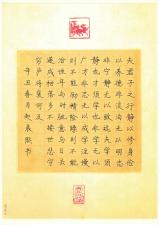 夫君子之行静以修身俭
以养德非淡泊无以明志
非宁静无以致远夫学须
静也才须学也非学无以
广才非志无以成学淫慢
则不能励精险躁则不能
治性年与时驰意与日去
遂成枯落多不接世悲守
穷庐将复何及
辛丑春月赵 书